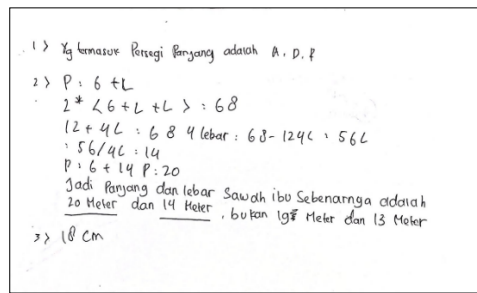 1> Yg termasuk Persegi Panjang adalah A, D, F
2> P : 6 + L
2 * <6 + L + L> : 68
12 + 4L : 68 4 lebar : 68 - 124L : 56L
: 56/4L : 14
P : 6 + 14 P : 20
Jadi Panjang dan lebar Sawah ibu Sebenarnya adalah
20 Meter dan 14 Meter, bukan 19 Meter dan 13 Meter
3> 18 cm